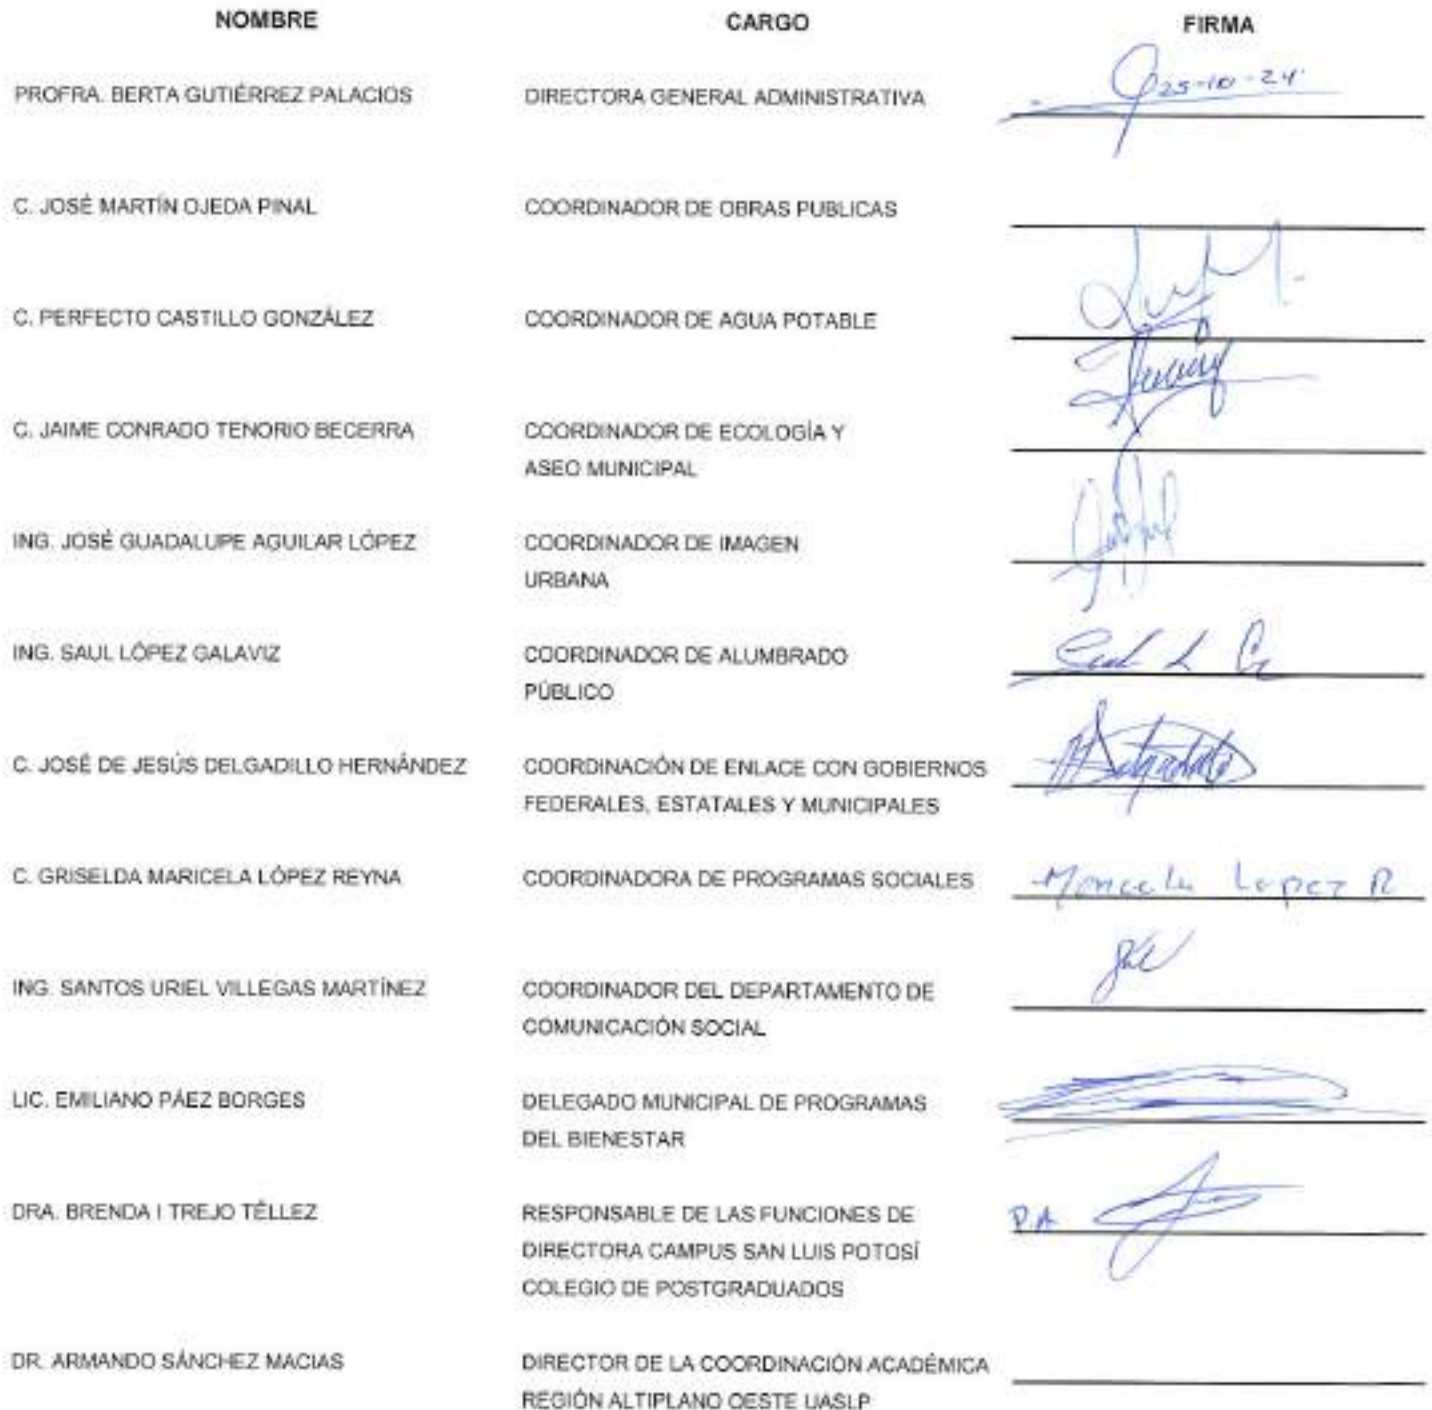 NOMBRE CARGO FIRMA
PROFRA. BERTA GUTIÉRREZ PALACIOS DIRECTORA GENERAL ADMINISTRATIVA 25-10-24
C. JOSÉ MARTÍN OJEDA PINAL COORDINADOR DE OBRAS PUBLICAS
C. PERFECTO CASTILLO GONZÁLEZ COORDINADOR DE AGUA POTABLE
C. JAIME CONRADO TENORIO BECERRA COORDINADOR DE ECOLOGÍA Y
ASEO MUNICIPAL
ING. JOSÉ GUADALUPE AGUILAR LÓPEZ COORDINADOR DE IMAGEN
URBANA
ING. SAUL LÓPEZ GALAVIZ COORDINADOR DE ALUMBRADO
PÚBLICO
C. JOSÉ DE JESÚS DELGADILLO HERNÁNDEZ COORDINACIÓN DE ENLACE CON GOBIERNOS
FEDERALES, ESTATALES Y MUNICIPALES
C. GRISELDA MARICELA LÓPEZ REYNA COORDINADORA DE PROGRAMAS SOCIALES Maricela Lopez R
ING. SANTOS URIEL VILLEGAS MARTÍNEZ COORDINADOR DEL DEPARTAMENTO DE
COMUNICACIÓN SOCIAL
LIC. EMILIANO PÁEZ BORGES DELEGADO MUNICIPAL DE PROGRAMAS
DEL BIENESTAR
DRA. BRENDA I TREJO TÉLLEZ RESPONSABLE DE LAS FUNCIONES DE P.A
DIRECTORA CAMPUS SAN LUIS POTOSÍ
COLEGIO DE POSTGRADUADOS
DR. ARMANDO SÁNCHEZ MACIAS DIRECTOR DE LA COORDINACIÓN ACADÉMICA
REGIÓN ALTIPLANO OESTE UASLP